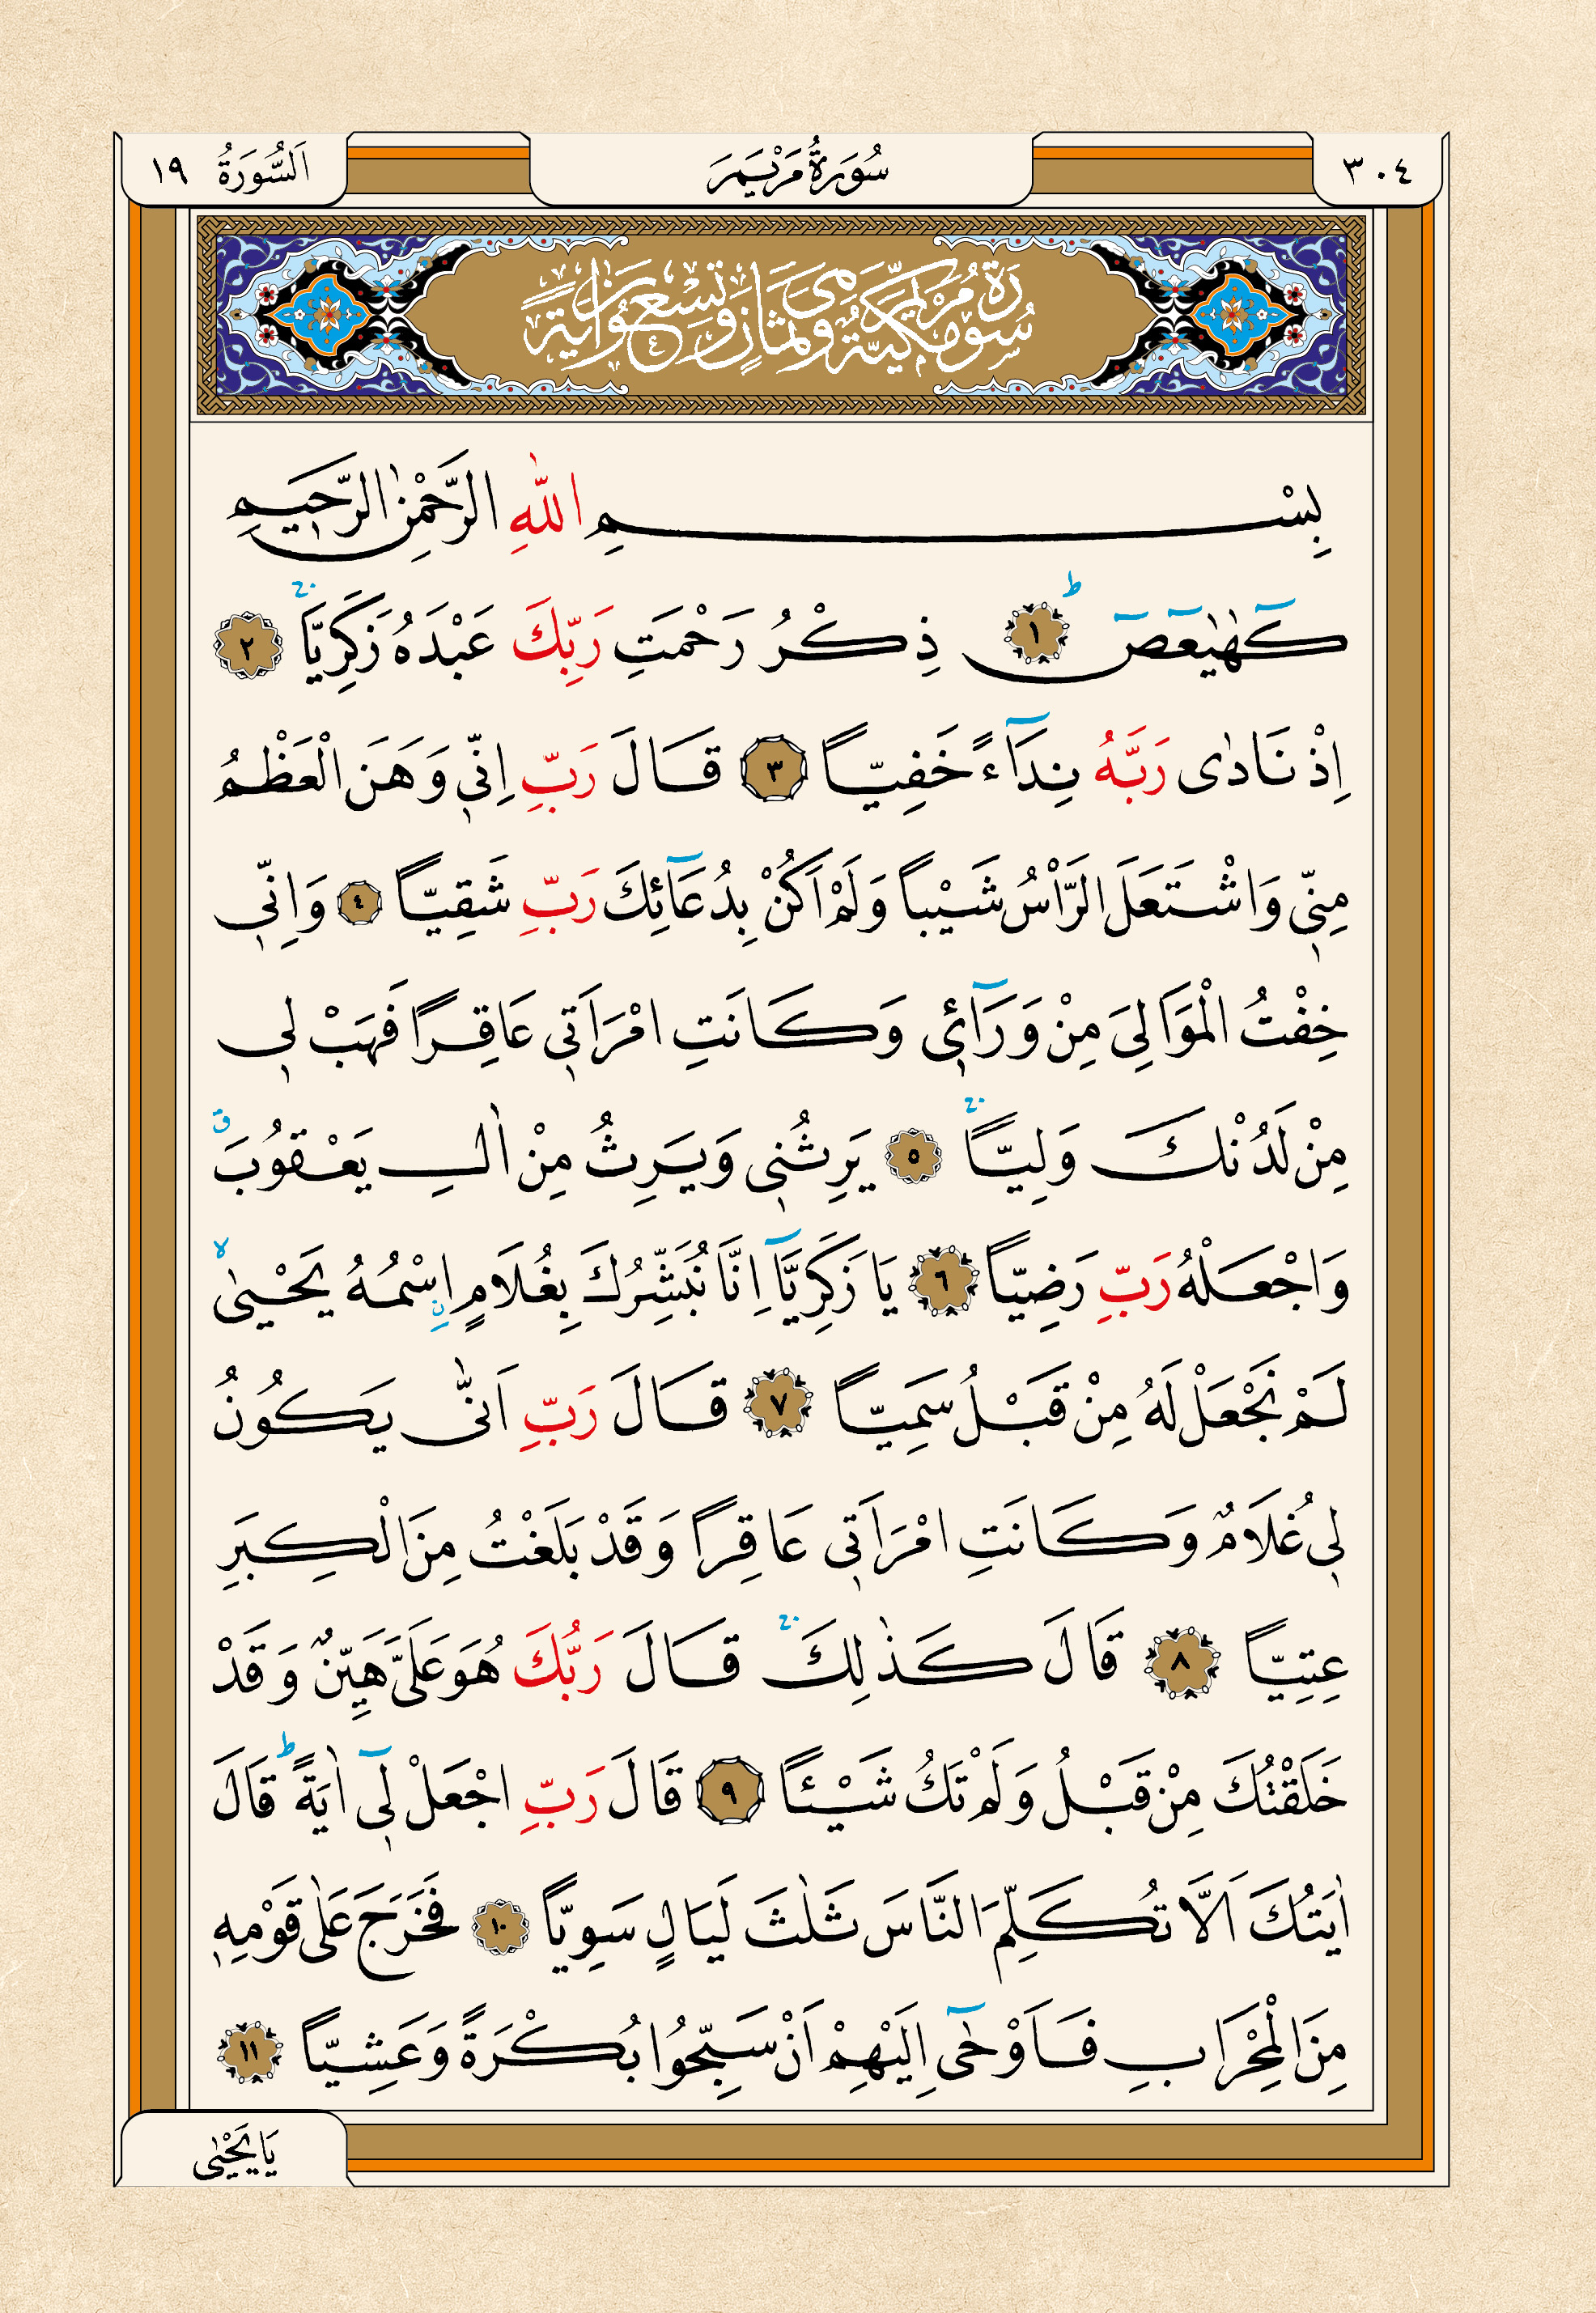 ٣٠٤ سُورَةُ مَرْيَمَ اَلسُّورَةُ ١٩
سُورَةُ مَرْيَمَ مَكِّيَّةٌ وَهِيَ ثَمَانٍ وَتِسْعُونَ اٰيَةً
بِسْمِ اللّٰهِ الرَّحْمٰنِ الرَّحٖيمِ
كٓهٰيٰعٓصٓ ط ١ ذِكْرُ رَحْمَتِ رَبِّكَ عَبْدَهُ زَكَرِيَّاۚ ٢
اِذْ نَادٰى رَبَّهُ نِدَٓاءً خَفِيّاً ٣ قَالَ رَبِّ اِنّٖي وَهَنَ الْعَظْمُ
مِنّٖي وَاشْتَعَلَ الرَّاْسُ شَيْباً وَلَمْ اَكُنْ بِدُعَٓائِكَ رَبِّ شَقِيّاً ٤ وَاِنّٖي
خِفْتُ الْمَوَالِيَ مِنْ وَرَٓائٖي وَكَانَتِ امْرَاَتٖي عَاقِراً فَهَبْ لٖي
مِنْ لَدُنْكَ وَلِيّاًۚ ٥ يَرِثُنٖي وَيَرِثُ مِنْ اٰلِ يَعْقُوبَۗ
وَاجْعَلْهُ رَبِّ رَضِيّاً ٦ يَا زَكَرِيَّٓا اِنَّا نُبَشِّرُكَ بِغُلَامٍۨ اسْمُهُ يَحْيٰىۙ
لَمْ نَجْعَلْ لَهُ مِنْ قَبْلُ سَمِيّاً ٧ قَالَ رَبِّ اَنّٰى يَكُونُ
لٖي غُلَامٌ وَكَانَتِ امْرَاَتٖي عَاقِراً وَقَدْ بَلَغْتُ مِنَ الْكِبَرِ
عِتِيّاً ٨ قَالَ كَذٰلِكَۚ قَالَ رَبُّكَ هُوَ عَلَيَّ هَيِّنٌ وَقَدْ
خَلَقْتُكَ مِنْ قَبْلُ وَلَمْ تَكُ شَيْـٔاً ٩ قَالَ رَبِّ اجْعَلْ لٖٓي اٰيَةًؕ قَالَ
اٰيَتُكَ اَلَّا تُكَلِّمَ النَّاسَ ثَلٰثَ لَيَالٍ سَوِيّاً ١٠ فَخَرَجَ عَلٰى قَوْمِهٖ
مِنَ الْمِحْرَابِ فَاَوْحٰٓى اِلَيْهِمْ اَنْ سَبِّحُوا بُكْرَةً وَعَشِيّاً ١١
يَا يَحْيٰى